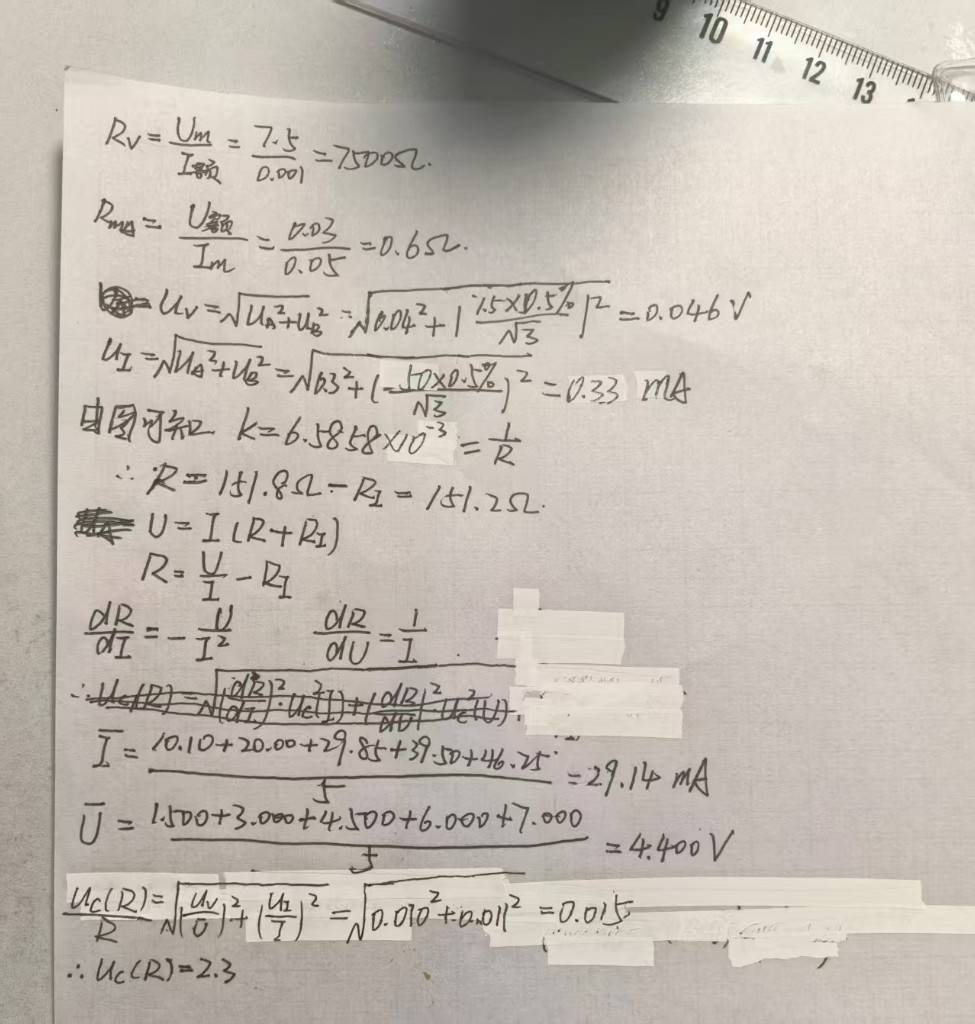 9 10 11 12 13
R_V = U_m/I额 = 7.5/0.001 = 7500Ω.
R_mA = U额/I_m = 0.03/0.05 = 0.6Ω.
= U_V = √(U_A²+U_B²) = √(0.04²+(7.5×0.5%/√3)²) = 0.046 V
U_I = √(U_A²+U_B²) = √(0.3²+(50×0.5%/√3)²) = 0.33 mA
由图可知 k = 6.5858×10⁻³ = 1/R
∴ R = 151.8Ω - R_I = 151.2Ω.
U = I(R+R_I)
R = U/I - R_I
dR/dI = -U/I² dR/dU = 1/I
∴ U_C(R) = √((dR/dI)²·U_C²(I)+(dR/dU)²·U_C²(U)).
Ī = (10.10+20.00+29.85+39.50+46.25)/5 = 29.14 mA
Ū = (1.500+3.000+4.500+6.000+7.000)/5 = 4.400 V
U_C(R)/R = √((U_V/U)²+(U_I/I)²) = √(0.010²+0.011²) = 0.015
∴ U_C(R) = 2.3